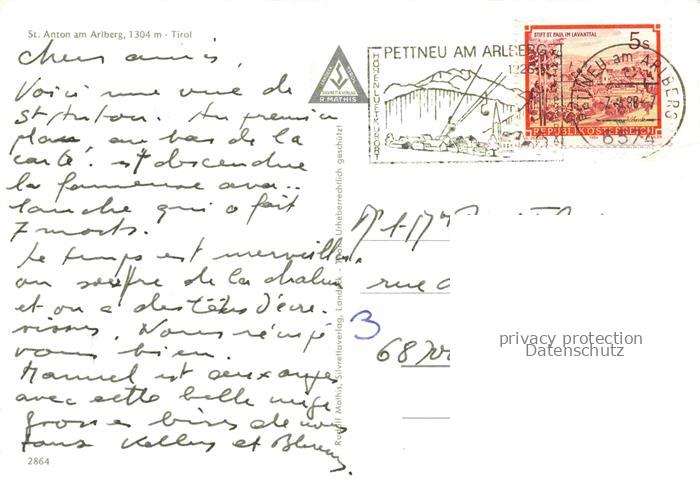 St. Anton am Arlberg, 1304 m - Tirol
chers amis,
Voici une vue de
St Anton. Au premier
plan, au bas de la
carte est descendue
la fameuse ava..
lanche qui a fait
7 morts.
Le temps est merveilleux,
on souffre de la chaleur
et on a des têtes d'écre.
visses. Nous
vous bien.
Manuel est aux anges
avec cette belle neige
grosses bises de nous
tous et
2864
R. MATHIS
Rudolf Mathis, Silvrettaverlag, Landeck - Tirol. Urheberrechtlich geschützt!
PETTNEU AM ARLBERG
1228 m
HÖHENLUFTKURORT
STIFT ST. PAUL IM LAVANTTAL
5s
REPUBLIK ÖSTERREICH
PETTNEU am ARLBERG
88-7
6574
rue
3
privacy protection
Datenschutz